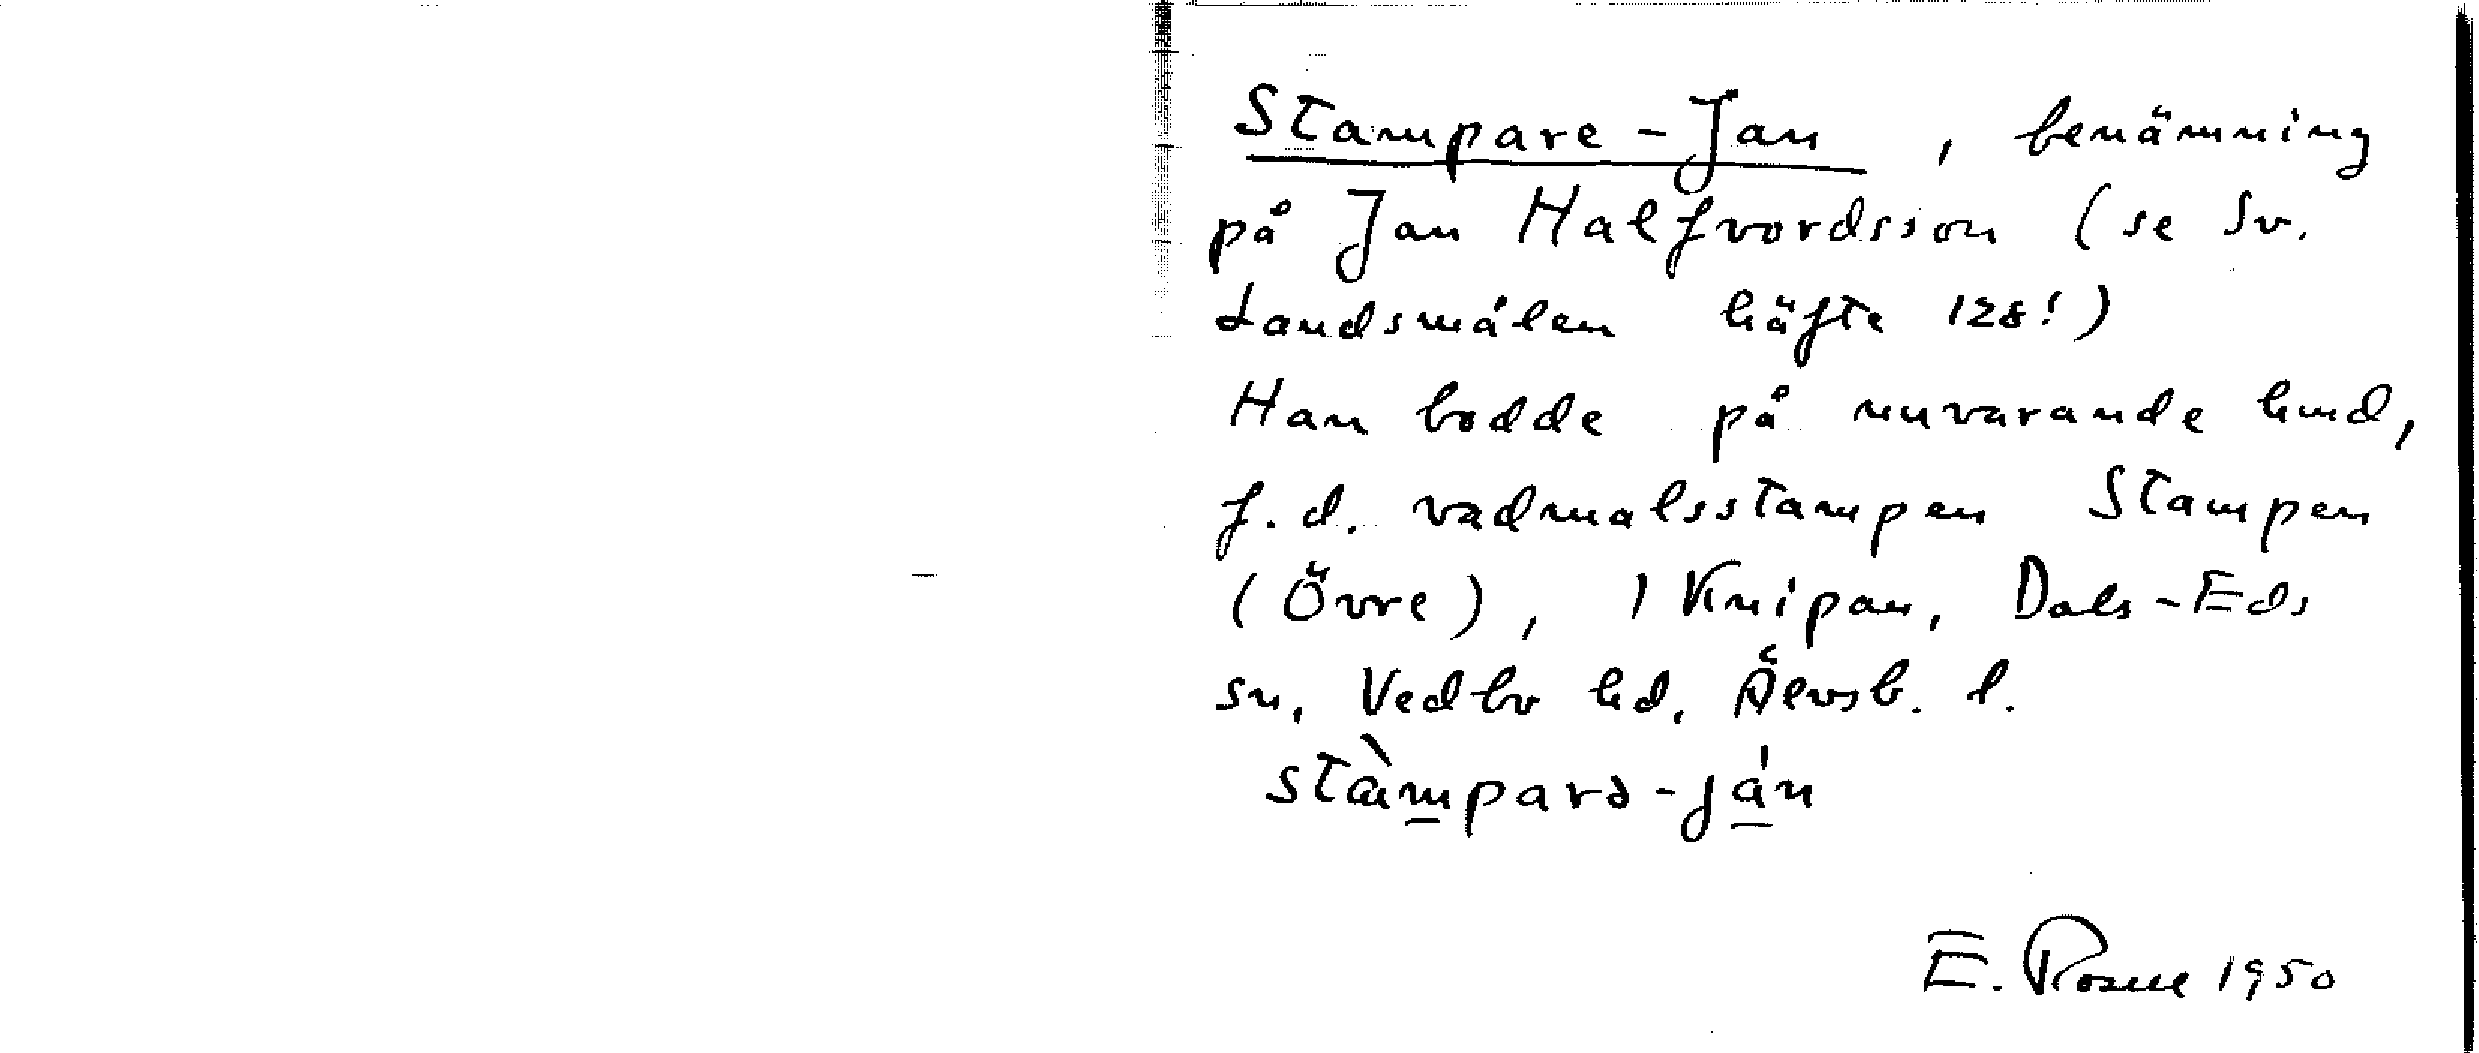 Stampare-Jan, benämning
på Jan Halfvordsson (se Sv.
Landsmålen häfte 128!)
Han bodde på nuvarande hmd,
f.d. vadmalsstampen Stampen
(Övre), 1 Knipan, Dals-Eds
sn, Vedbo hd, Älvsb. l.
stàmparə-ján
E. Rosne 1950